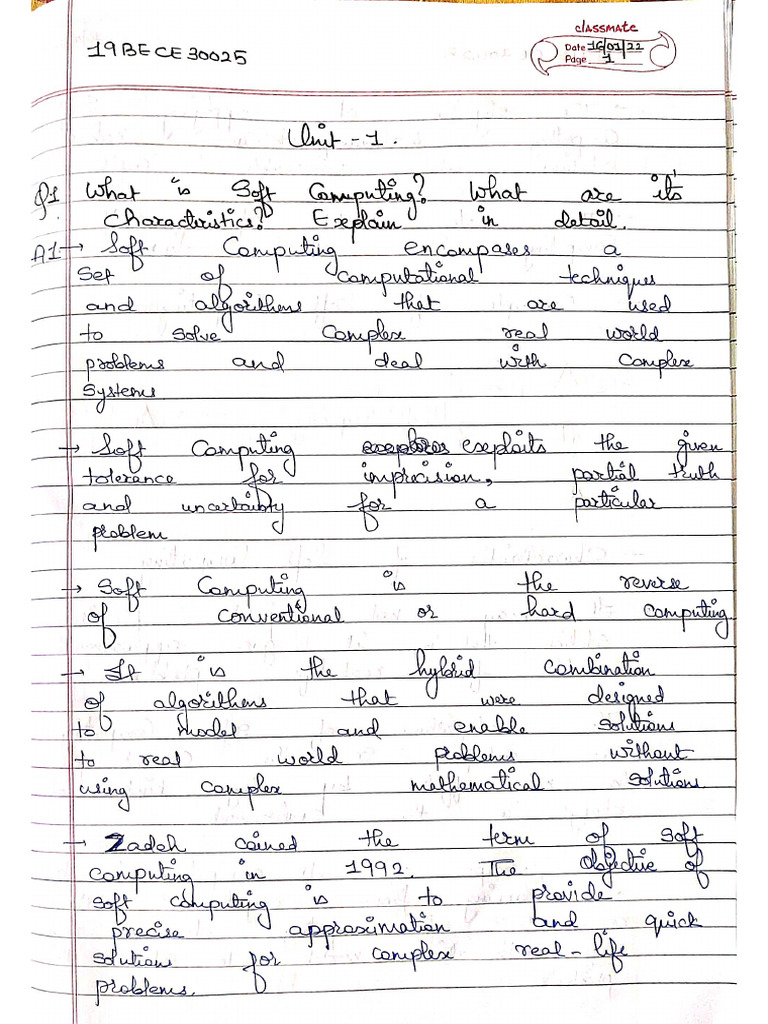 19BECE30025
classmate
Date 16/01/22
Page 1
Unit - 1.
Q1 What is Soft Computing? What are its
characteristics? Explain in detail.
A1 → Soft Computing encompases a
Set of computational techniques
and algorithms that are used
to solve complex real world
problems and deal with complex
systems
→ Soft Computing exploits the given
tolerance for imprecision, partial truth
and uncertainty for a particular
problem
→ Soft Computing is the reverse
of conventional or hard computing.
→ It is the hybrid combination
of algorithms that were designed
to model and enable solutions
to real world problems without
using complex mathematical solutions.
→ Zadeh coined the term of soft
computing in 1992. The objective of
soft computing is to provide
precise approximation and quick
solutions for complex real-life
problems.